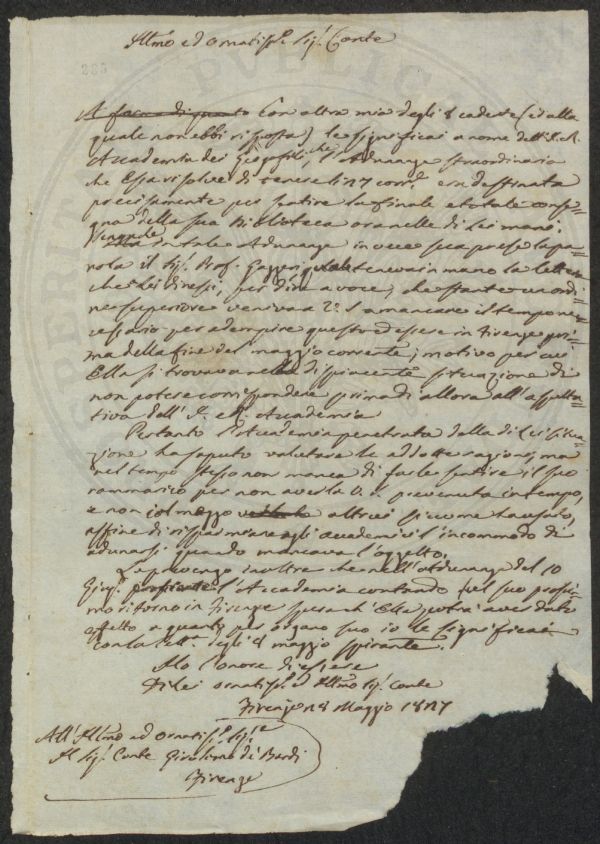 Illmo ed Ornatiss. Sig. Conte
285
A forma di quanto Con altra mia degli 8 cadente (ed alla
quale non ebbi risposta) le significai a nome dell'I. R.
Accademia dei Georgofili, che l'Adunanza straordinaria
che Essa risolvé di tenere li 27 corr. era destinata
precisamente per sentire la finale e totale conse=
gna della sua Biblioteca ora nelle di Lei mani.
Venendo
in tale Adunanza in vece sua prese la pa=
rola il Sig. Prof. Gazzeri, quale teneva in mano la lettera
che Lei diressi, per dire a voce, che stante un ordi=
ne superiore veniva a Lei a mancare il tempo ne=
cessario per adempire questo d'essere in Firenze pri=
ma della fine del maggio corrente; motivo per cui
Ella si trovava nella dispiacente situazione di
non potere corrispondere prima di allora all'aspetta=
tiva dell'I. e R. Accademia
Pertanto l'Accademia penetrata dalla di Lei situa=
zione ha saputo valutare le addotte ragioni, ma
nel tempo stesso non manca di farle sentire il suo
rammarico per non averla V. S. prevenuta in tempo,
e non col mezzo altrui siccome ha usato,
affine di risparmiare agli accademici l'incommodo di
adunarsi quando mancava l'oggetto.
La prevengo inoltre che nell'Adunanza del 10
Giug. l'Accademia contando sul suo prossi=
mo ritorno in Firenze spera ch'Ella potrà aver dato
effetto a quanto per organo suo io le significai
con la Lett. degli 8 maggio spirante.
Ho l'onore di essere
Di Lei Ornatiss. e Illmo Sig. Conte
Firenze 28 Maggio 1827
All'Illmo ed Ornatiss. Sig.
Il Sig. Conte Girolamo de' Bardi
Firenze